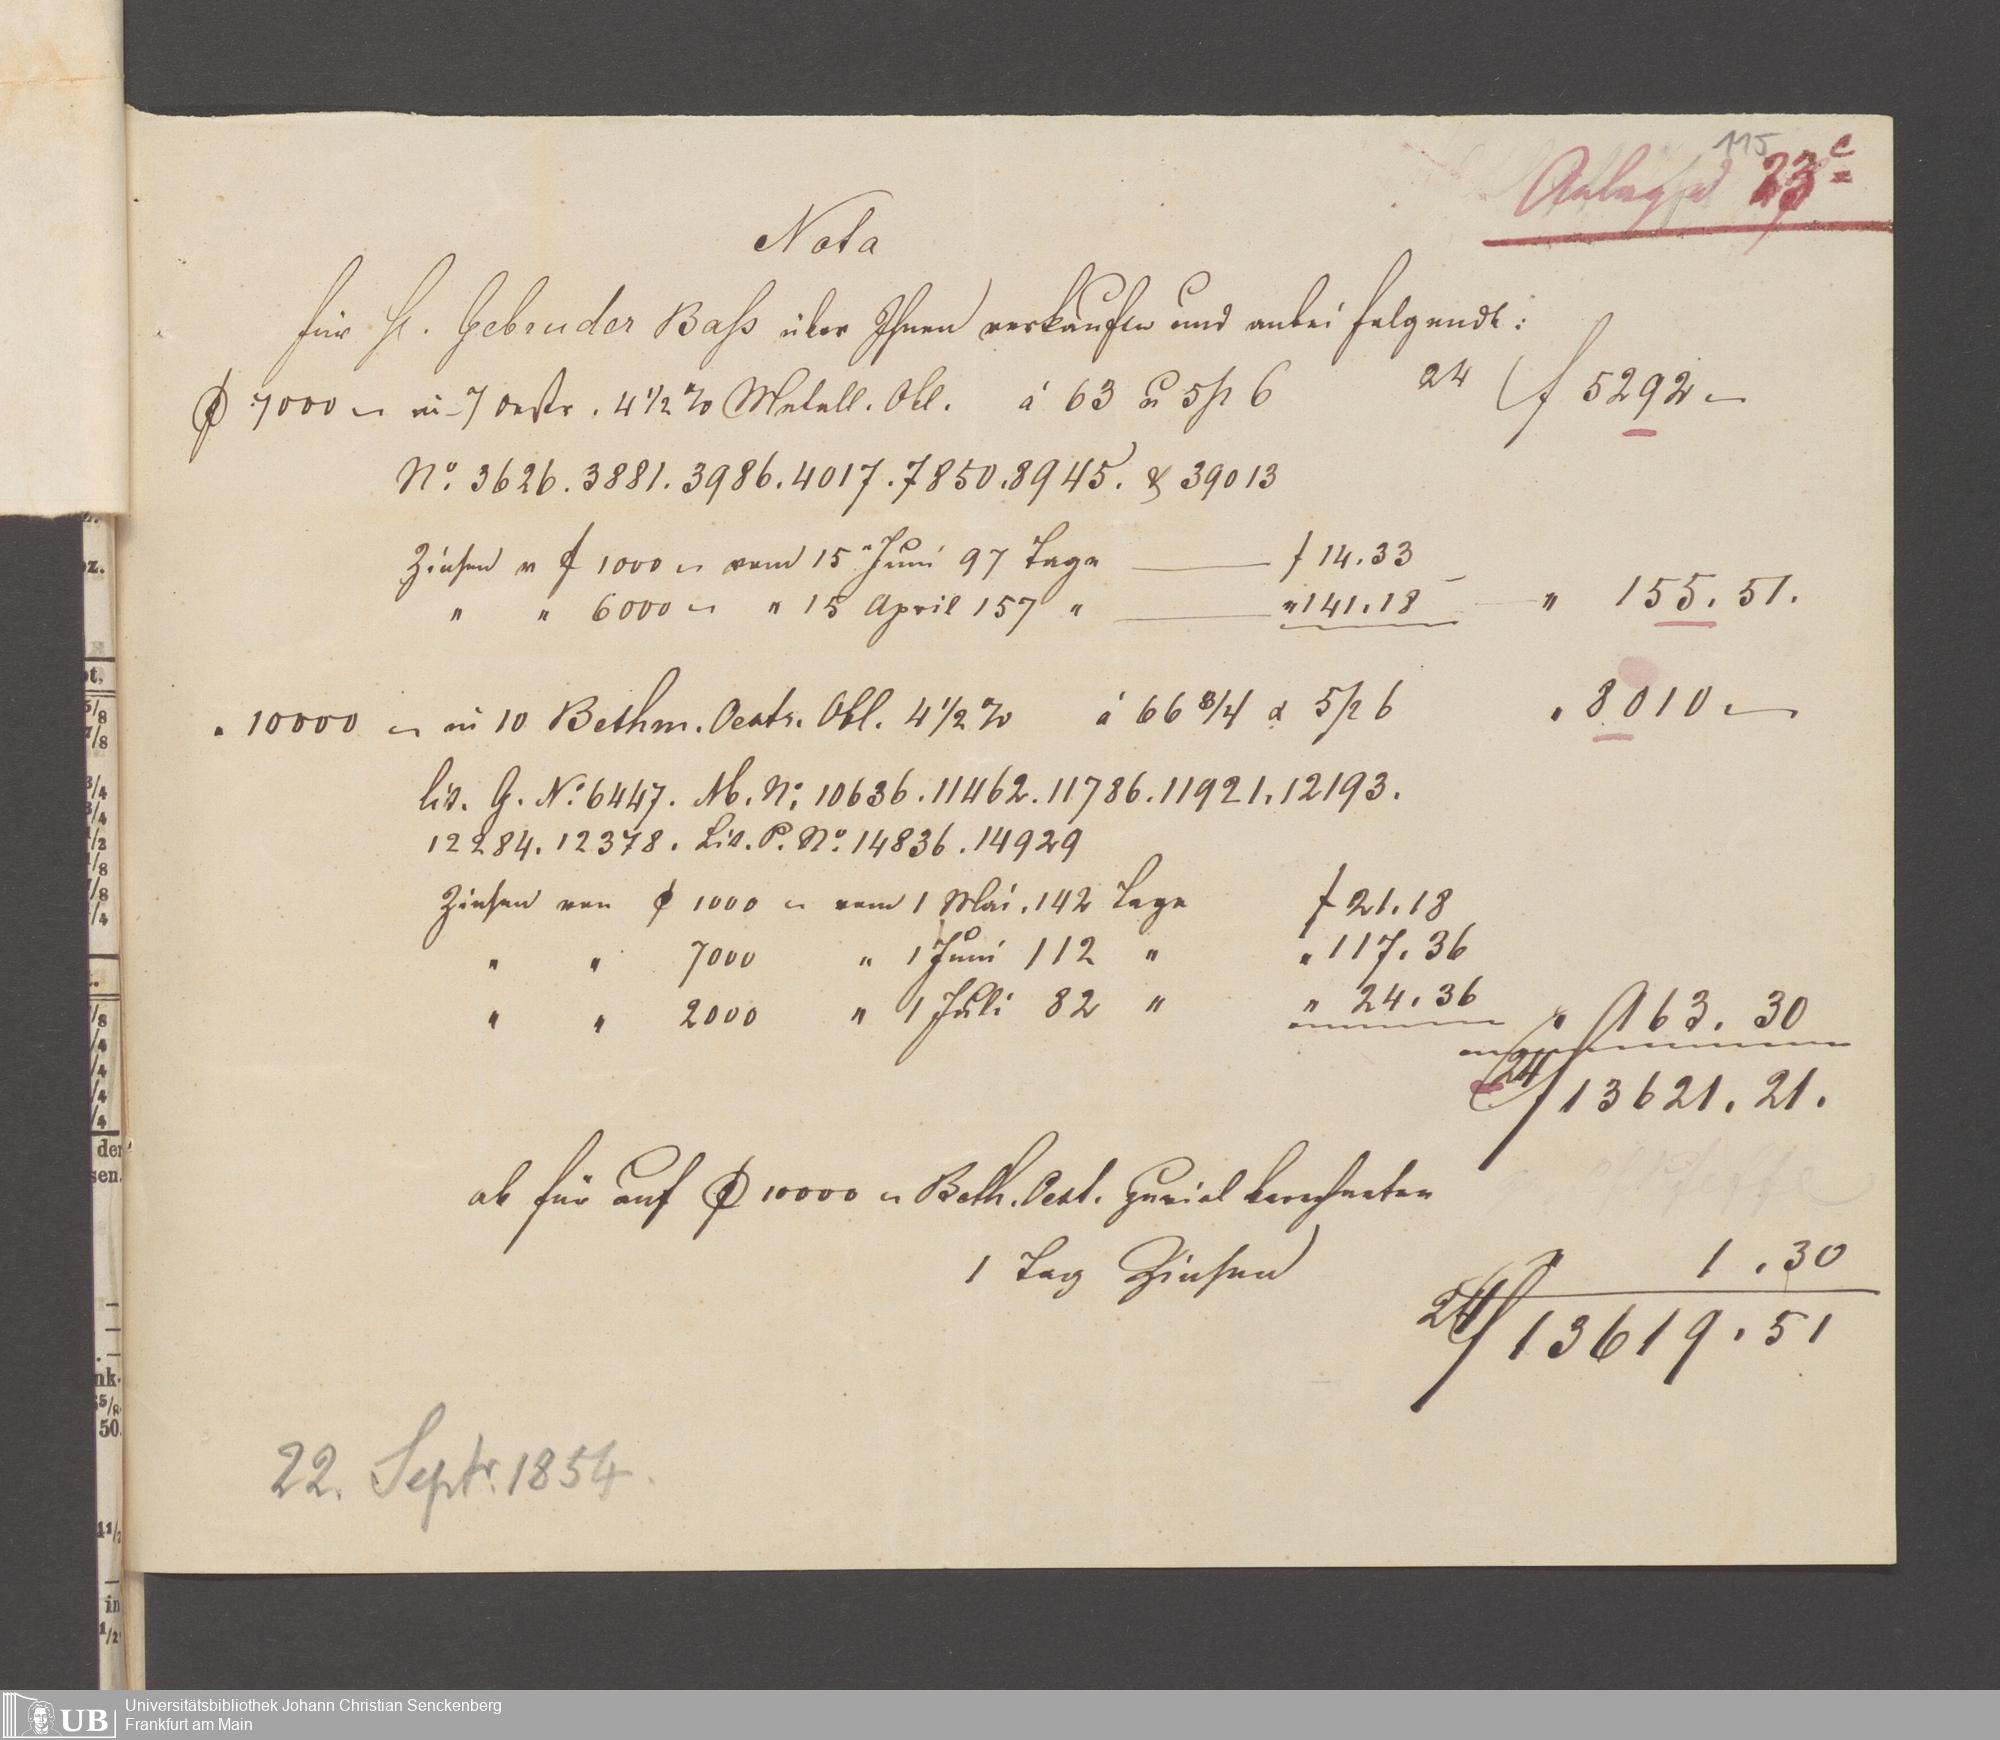 115
Anlage 23 c
Nota
für H. Gebruder Bass über Ihnen verkaufte und anbei folgende:
f 7000 in 7 Oestr. 4 1/2 % Metall. Obl. á 63 a 5/2 6 24 f 5292 —
No. 3626. 3881. 3986. 4017. 7850. 8945. & 39013
Zinsen v f 1000 vom 15 Juni 97 Tage f 14.33
" " 6000 " 15 April 157 " " 141.18 — " 155.51.
" 10000 in 10 Bethm. Oestr. Obl. 4 1/2 % á 66 3/4 a 5/2 6 " 8010 —
Lit. G. No. 6447. M. No. 10636. 11462. 11786. 11921. 12193.
12284. 12378. Lit. P. No. 14836. 14929
Zinsen von f 1000 vom 1 Mai. 142 Tage f 21.18
" " 7000 " 1 Juni 112 " " 117.36
" " 2000 " 1 Juli 82 " " 24.36 " 163.30
24 f 13621.21.
ab für auf f 10000 Beth. Oest. zuviel berechneten
1 Tag Zinsen " 1.30
24 f 13619.51
22. Septr. 1854.
UB
Universitätsbibliothek Johann Christian Senckenberg
Frankfurt am Main